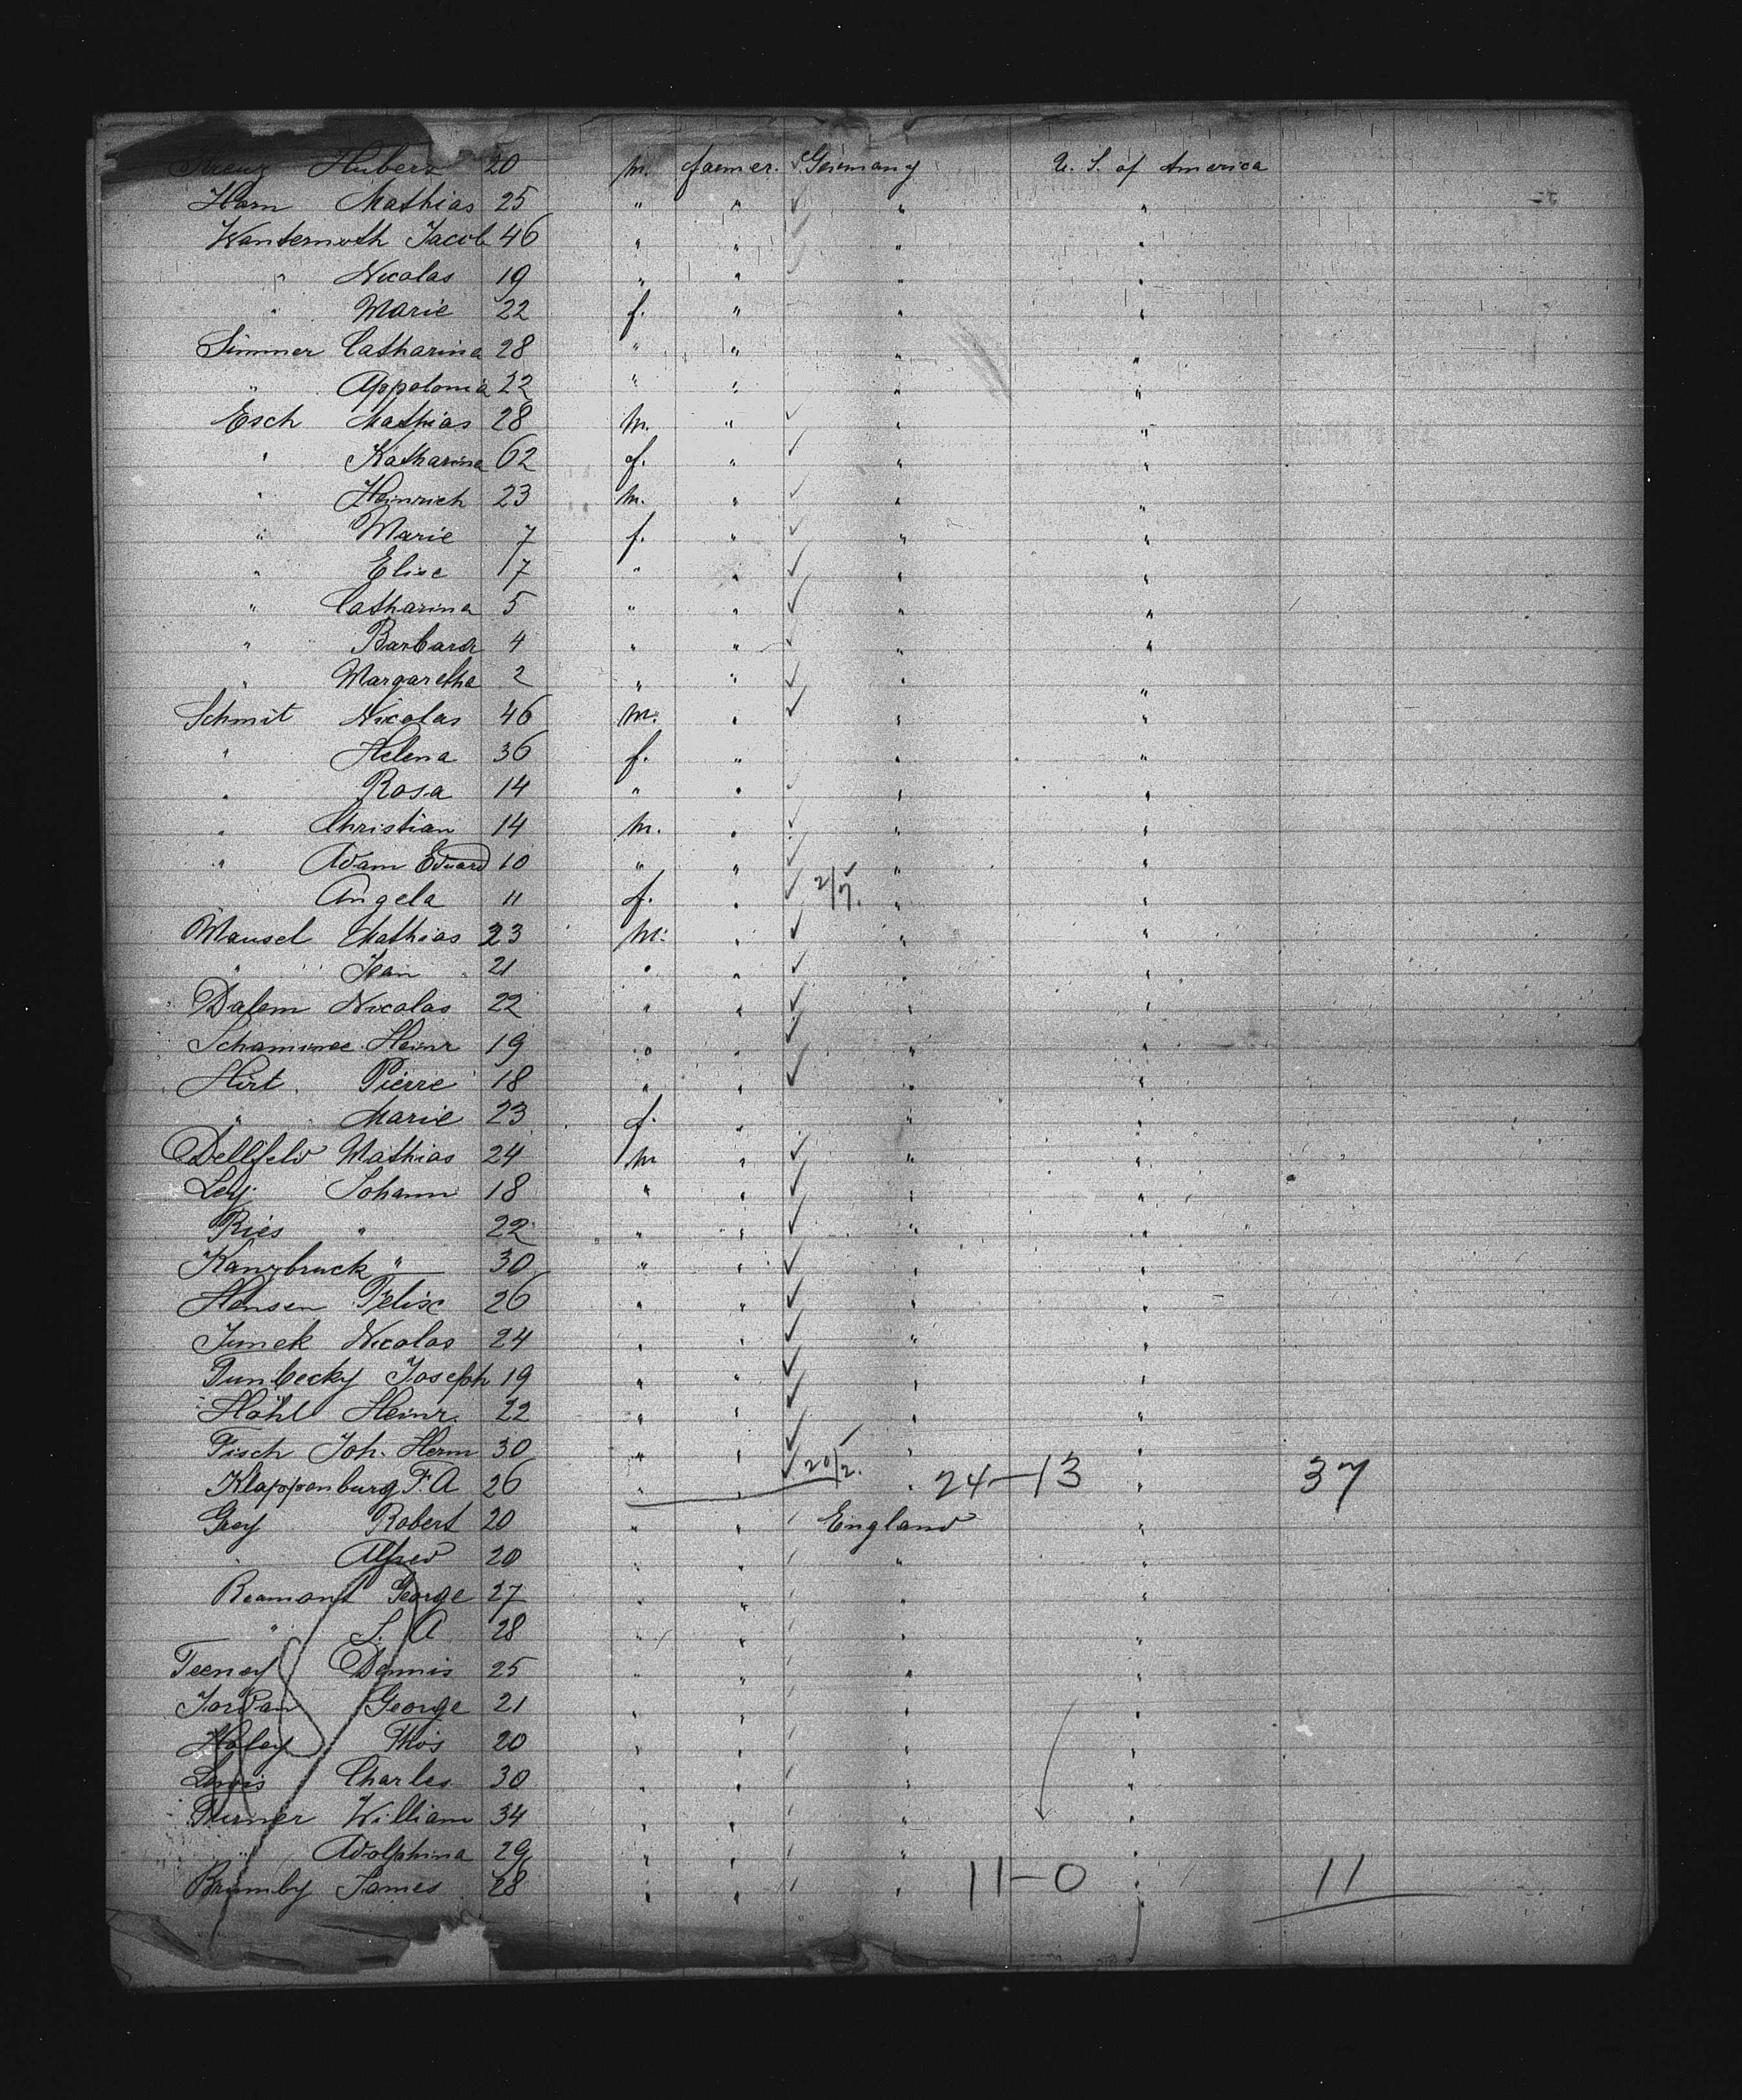 Kreuz Hubert 20 m. farmer. Germany U. S. of America
Horn Mathias 25 " " " "
Wanternoth Jacob 46 " " " "
" Nicolas 19 " " " "
" Marie 22 f. " " "
Simmer Catharina 28 " " " "
" Appolonia 22 " " " "
Esch Mathias 28 m. " " "
" Katharina 62 f. " " "
" Heinrich 23 m. " " "
" Marie 7 f. " " "
" Elise 17 " " " "
" Catharina 5 " " " "
" Barbara 4 " " " "
" Margaretha 2 " " " "
Schmit Nicolas 46 m. " " "
" Helena 36 f. " " "
" Rosa 14 " " " "
" Christian 14 m. " " "
" Adam Eduard 10 " " " "
Angela 11 f. " 2/7. " "
Mausel Mathias 23 m. " " "
" Jean 21 " " " "
Dalem Nicolas 22 " " " "
Schaminee Heinr 19 " " " "
Hirt Pierre 18 " " " "
" Marie 23 f. " " "
Dellfeld Mathias 24 m " " "
Ley Johann 18 " " " "
Ries " 22 " " " "
Kanzbruck " 30 " " " "
Hensen Felix 26 " " " "
Junek Nicolas 24 " " " "
Dunbecky Joseph 19 " " " "
Höhl Heinr. 22 " " " "
Fisch Joh. Herm 30 " " " "
Klappenburg F. A 26 " " 20/2. " 24-13 " 37
Grey Robert 20 " " England "
" Alfred 20 " " " "
Beamont George 27 " " " "
" S. A 28 " " " "
Teeney Dennis 25 " " " "
Jordan George 21 " " " "
Haley Thos 20 " " " "
Lewis Charles 30 " " " "
Turner William 34 " " " "
" Adolphina 29 " " " "
Brumby James 28 " " " 11-0 " 11